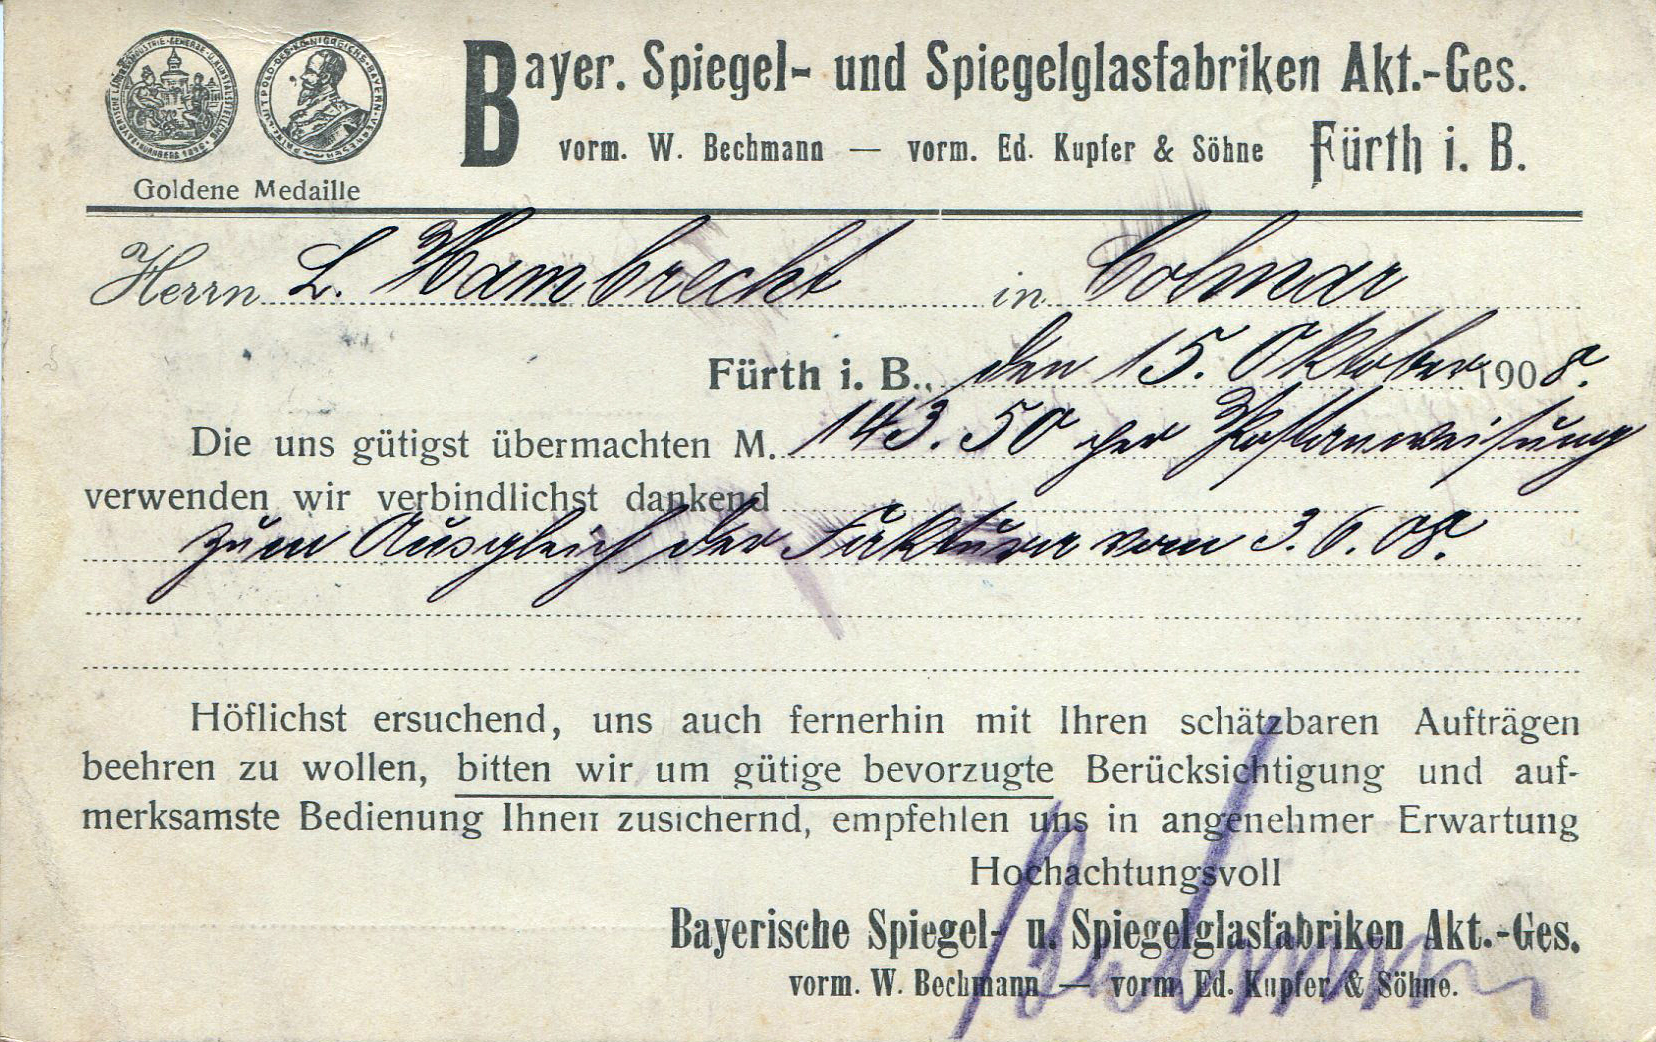 BAYERISCHE LANDESINDUSTRIE-GEWERBE-U.KUNSTAUSSTELLUNG
NÜRNBERG 1896
LUITPOLD DES KÖNIGREICHS BAYERN VERWESER
Goldene Medaille
Bayer. Spiegel- und Spiegelglasfabriken Akt.-Ges.
vorm. W. Bechmann — vorm. Ed. Kupfer & Söhne Fürth i. B.
Herrn L. Hambrecht in Colmar
Fürth i. B., den 15. Oktober 1908.
Die uns gütigst übermachten M. 143.50 per Postanweisung
verwenden wir verbindlichst dankend
zum Ausgleich der Faktura vom 3.6.08.
Höflichst ersuchend, uns auch fernerhin mit Ihren schätzbaren Aufträgen
beehren zu wollen, bitten wir um gütige bevorzugte Berücksichtigung und auf-
merksamste Bedienung Ihnen zusichernd, empfehlen uns in angenehmer Erwartung
Hochachtungsvoll
Bayerische Spiegel- u. Spiegelglasfabriken Akt.-Ges.
vorm. W. Bechmann — vorm. Ed. Kupfer & Söhne.